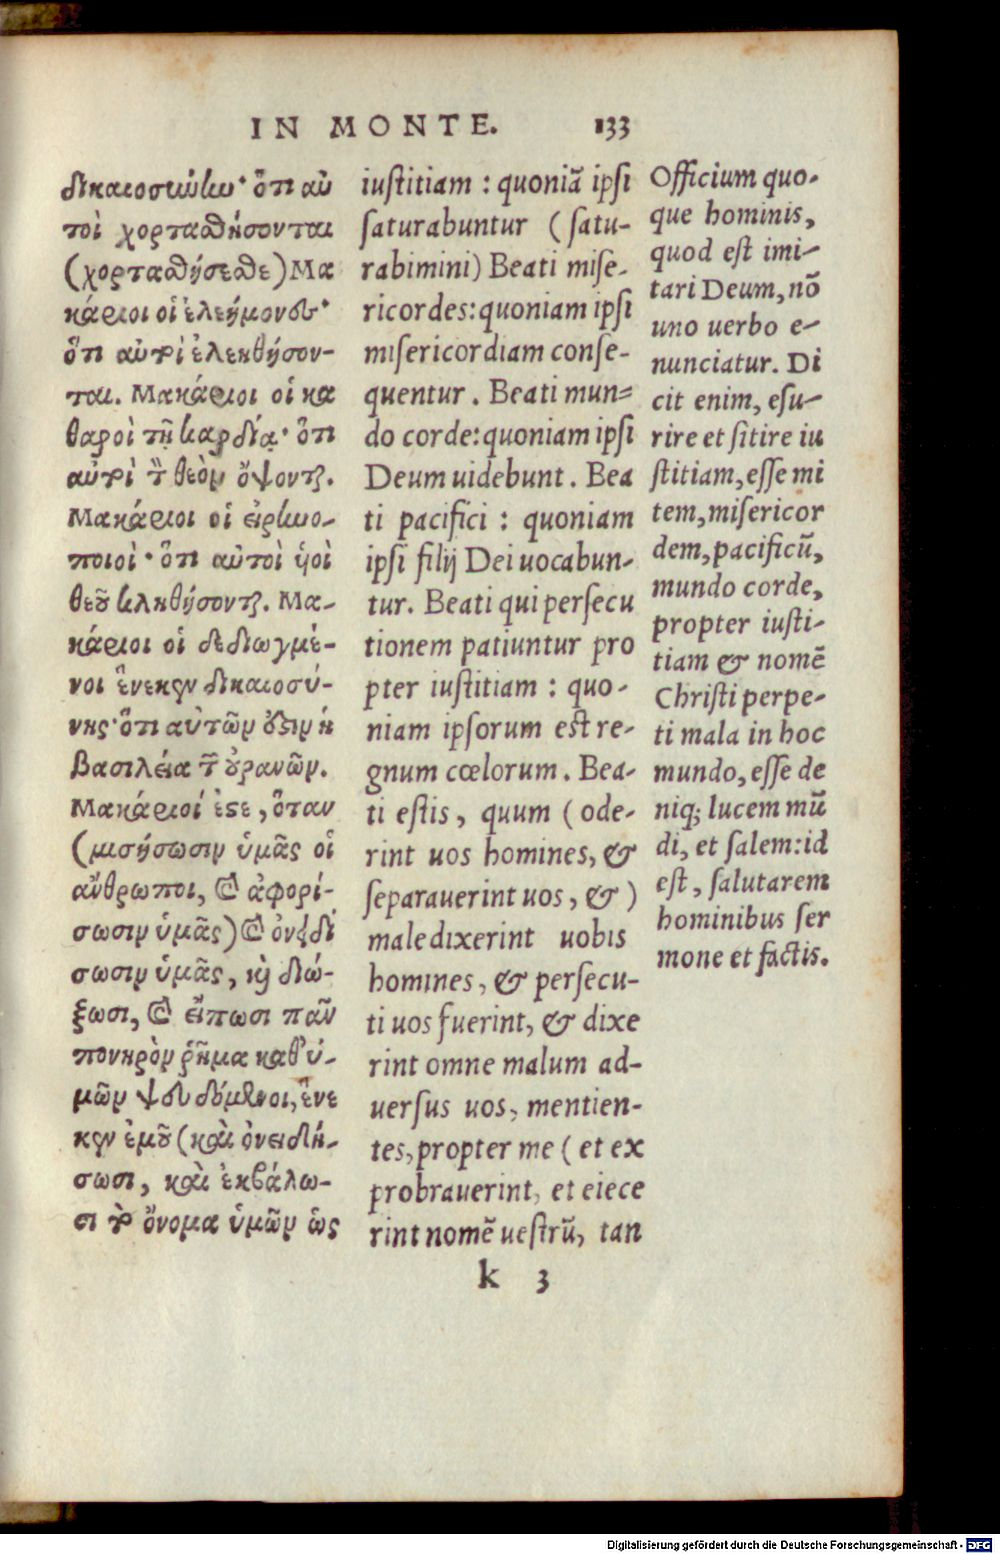 IN MONTE. 133
δικαιοσύνην· ὅτι αὐ
τοὶ χορτασθήσονται
(χορτασθήσεσθε) Μα
κάριοι οἱ ἐλεήμονες·
ὅτι αὐτοὶ ἐλεηθήσον-
ται. Μακάριοι οἱ κα
θαροὶ τῇ καρδίᾳ· ὅτι
αὐτοὶ τὸν θεὸν ὄψονται.
Μακάριοι οἱ εἰρηνο-
ποιοὶ· ὅτι αὐτοὶ ὑοὶ
θεοῦ κληθήσονται. Μα-
κάριοι οἱ δεδιωγμέ-
νοι ἕνεκεν δικαιοσύ-
νης· ὅτι αὐτῶν ἐστιν ἡ
βασιλεία τῶν οὐρανῶν.
Μακάριοί ἐστε, ὅταν
(μισήσωσιν ὑμᾶς οἱ
ἄνθρωποι, καὶ ἀφορί-
σωσιν ὑμᾶς) καὶ ὀνειδί
σωσιν ὑμᾶς, καὶ διώ-
ξωσι, καὶ εἴπωσι πᾶν
πονηρὸν ῥῆμα καθ' ὑ-
μῶν ψευδόμενοι, ἕνε
κεν ἐμοῦ (καὶ ὀνειδή-
σωσι, καὶ ἐκβάλω-
σι τὸ ὄνομα ὑμῶν ὡς
iustitiam : quoniã ipsi
saturabuntur (satu-
rabimini) Beati mise-
ricordes: quoniam ipsi
misericordiam conse-
quentur. Beati mun=
do corde: quoniam ipsi
Deum uidebunt. Bea
ti pacifici : quoniam
ipsi filij Dei uocabun-
tur. Beati qui persecu
tionem patiuntur pro
pter iustitiam : quo-
niam ipsorum est re-
gnum cœlorum. Bea-
ti estis, quum (ode-
rint uos homines, &
separauerint uos, &)
maledixerint uobis
homines, & persecu-
ti uos fuerint, & dixe
rint omne malum ad-
uersus uos, mentien-
tes, propter me (et ex
probrauerint, et eiece
rint nomẽ uestrũ, tan
Officium quo-
que hominis,
quod est imi-
tari Deum, nõ
uno uerbo e-
nunciatur. Di
cit enim, esu-
rire et sitire iu
stitiam, esse mi
tem, misericor
dem, pacificũ,
mundo corde,
propter iusti-
tiam & nomẽ
Christi perpe-
ti mala in hoc
mundo, esse de
niq; lucem mũ
di, et salem: id
est, salutarem
hominibus ser
mone et factis.
k 3
Digitalisierung gefördert durch die Deutsche Forschungsgemeinschaft - DFG